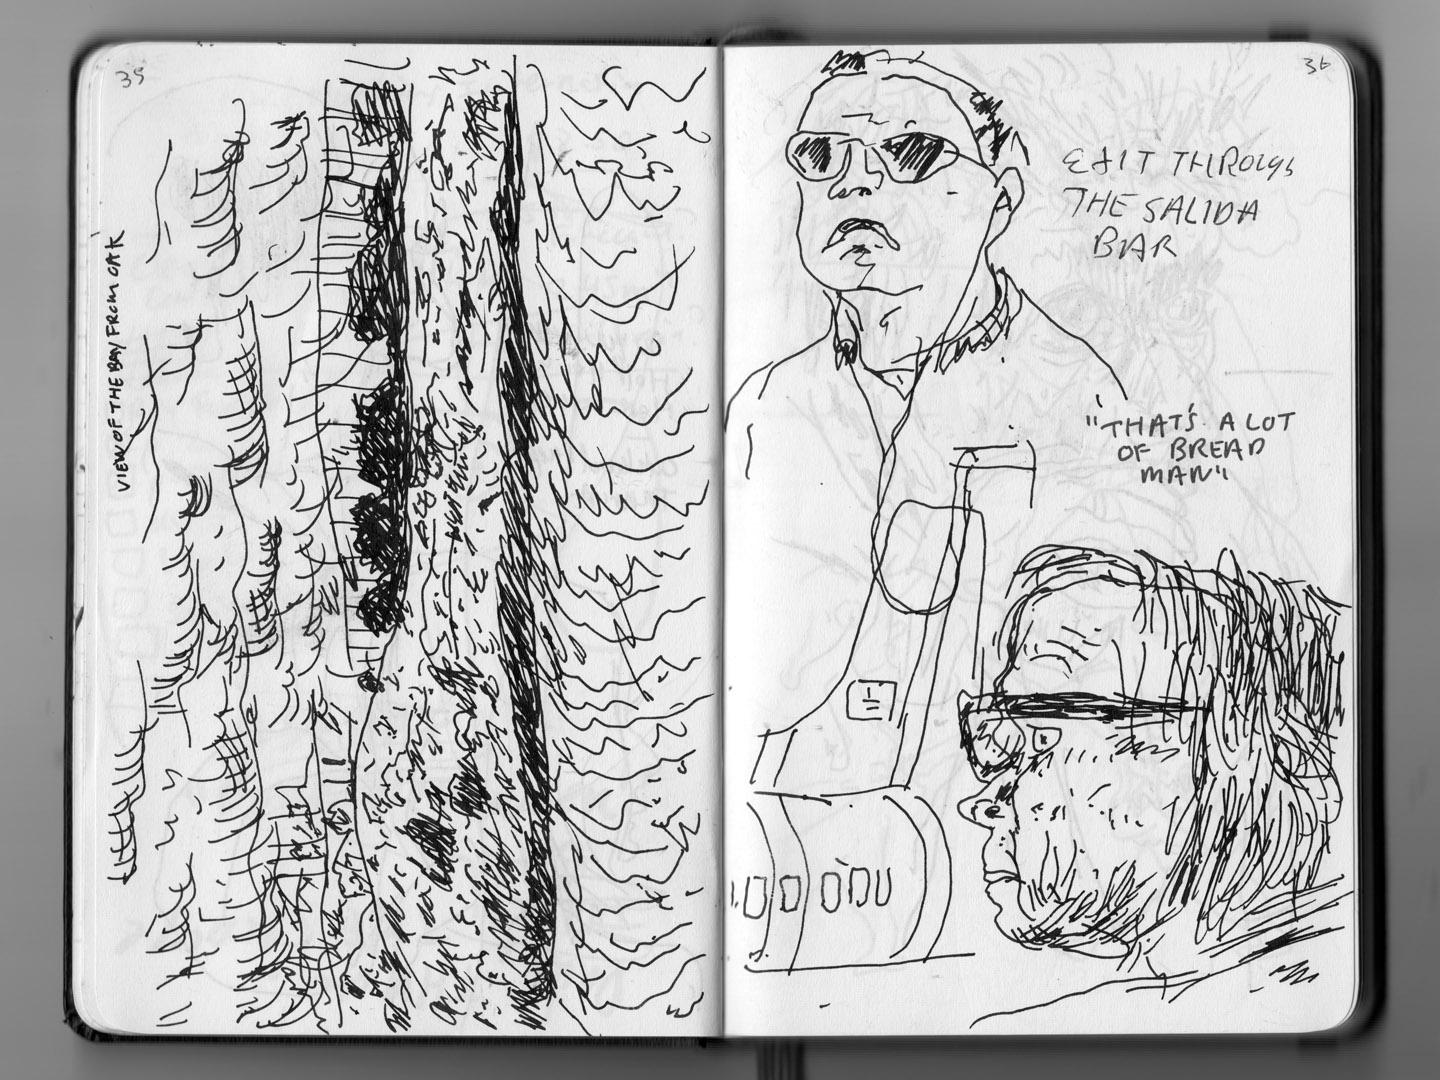 35
VIEW OF THE BAY FROM OAK
36
EXIT THROUGH
THE SALIDA
BAR
"THAT'S A LOT
OF BREAD
MAN"